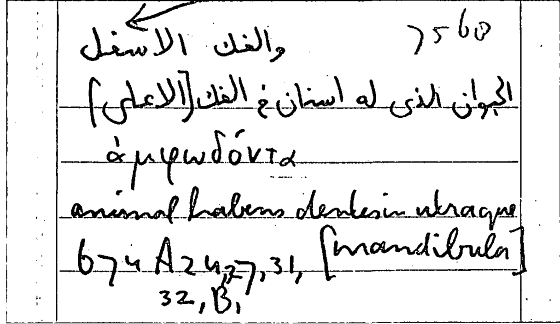 والفك الاسفل 7560
الحيوان الذى له اسنان فى الفك [الاعلى]
ἀμφωδόντα
animal habens dentes in utraque
674 A24,27,31, [mandibula]
32, B1